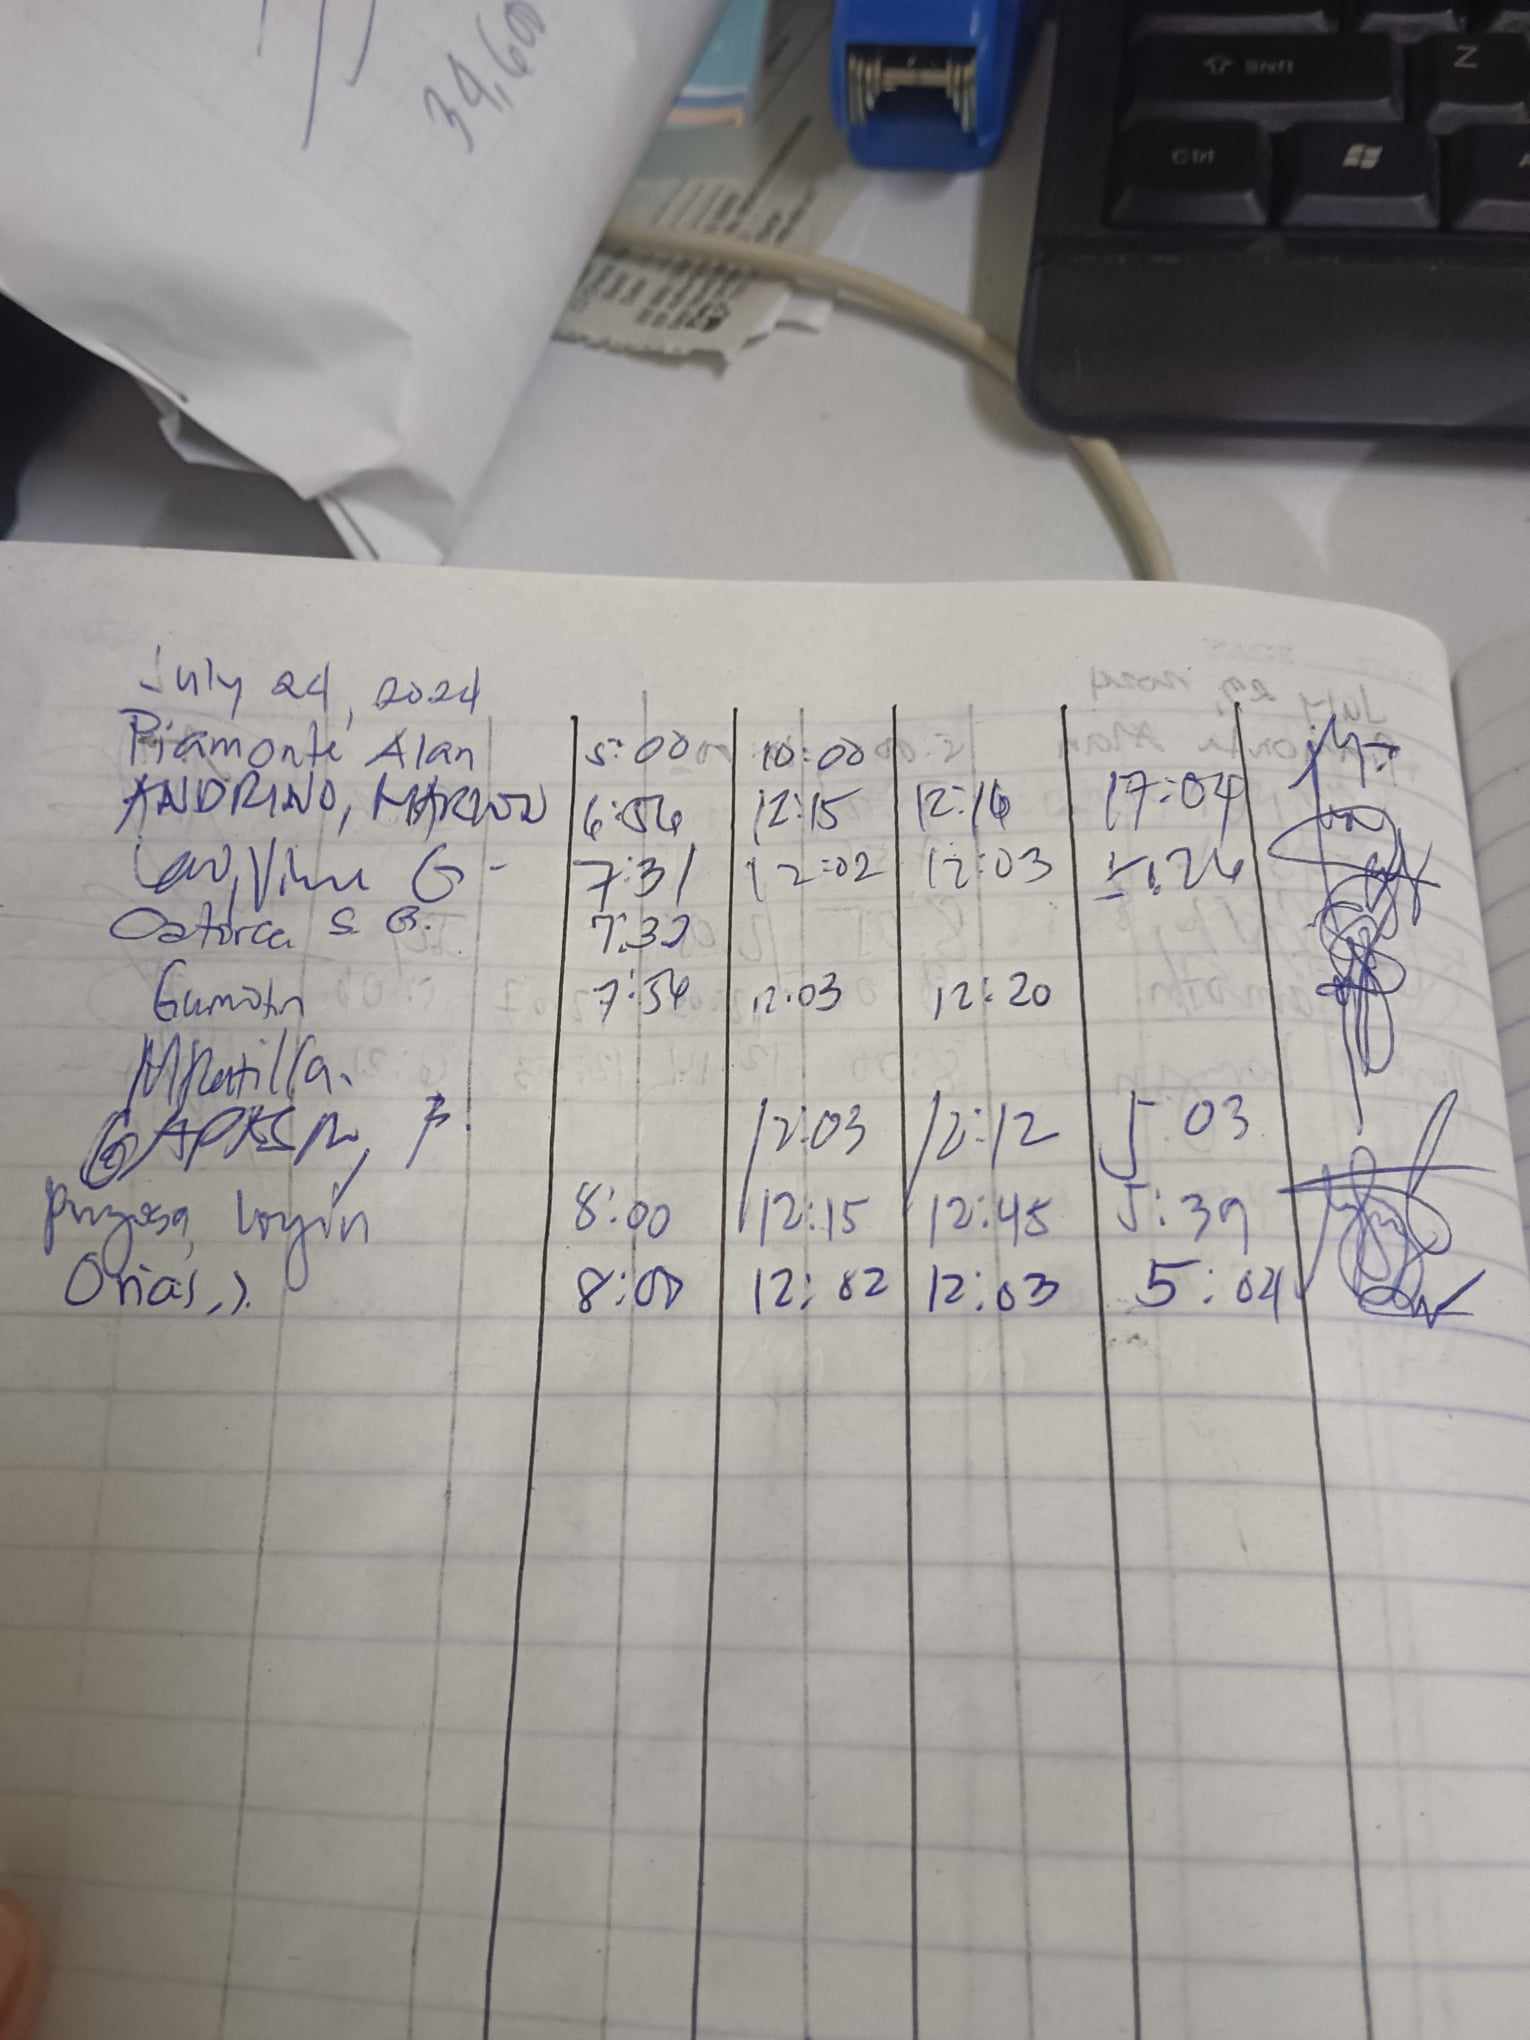 34,600
Shift
Z
Ctrl
July 24, 2024
Piamonte, Alan 5:00 10:00
ANDRINO, MARLON 6:56 12:15 12:16 17:04
7:31 12:02 12:03 5:26
S. B. 7:32
Gumoth 7:54 12:03 12:20
MPatilla.
12:03 12:12 5:03
8:00 12:15 12:45 5:39
Orias, J. 8:00 12:02 12:03 5:04